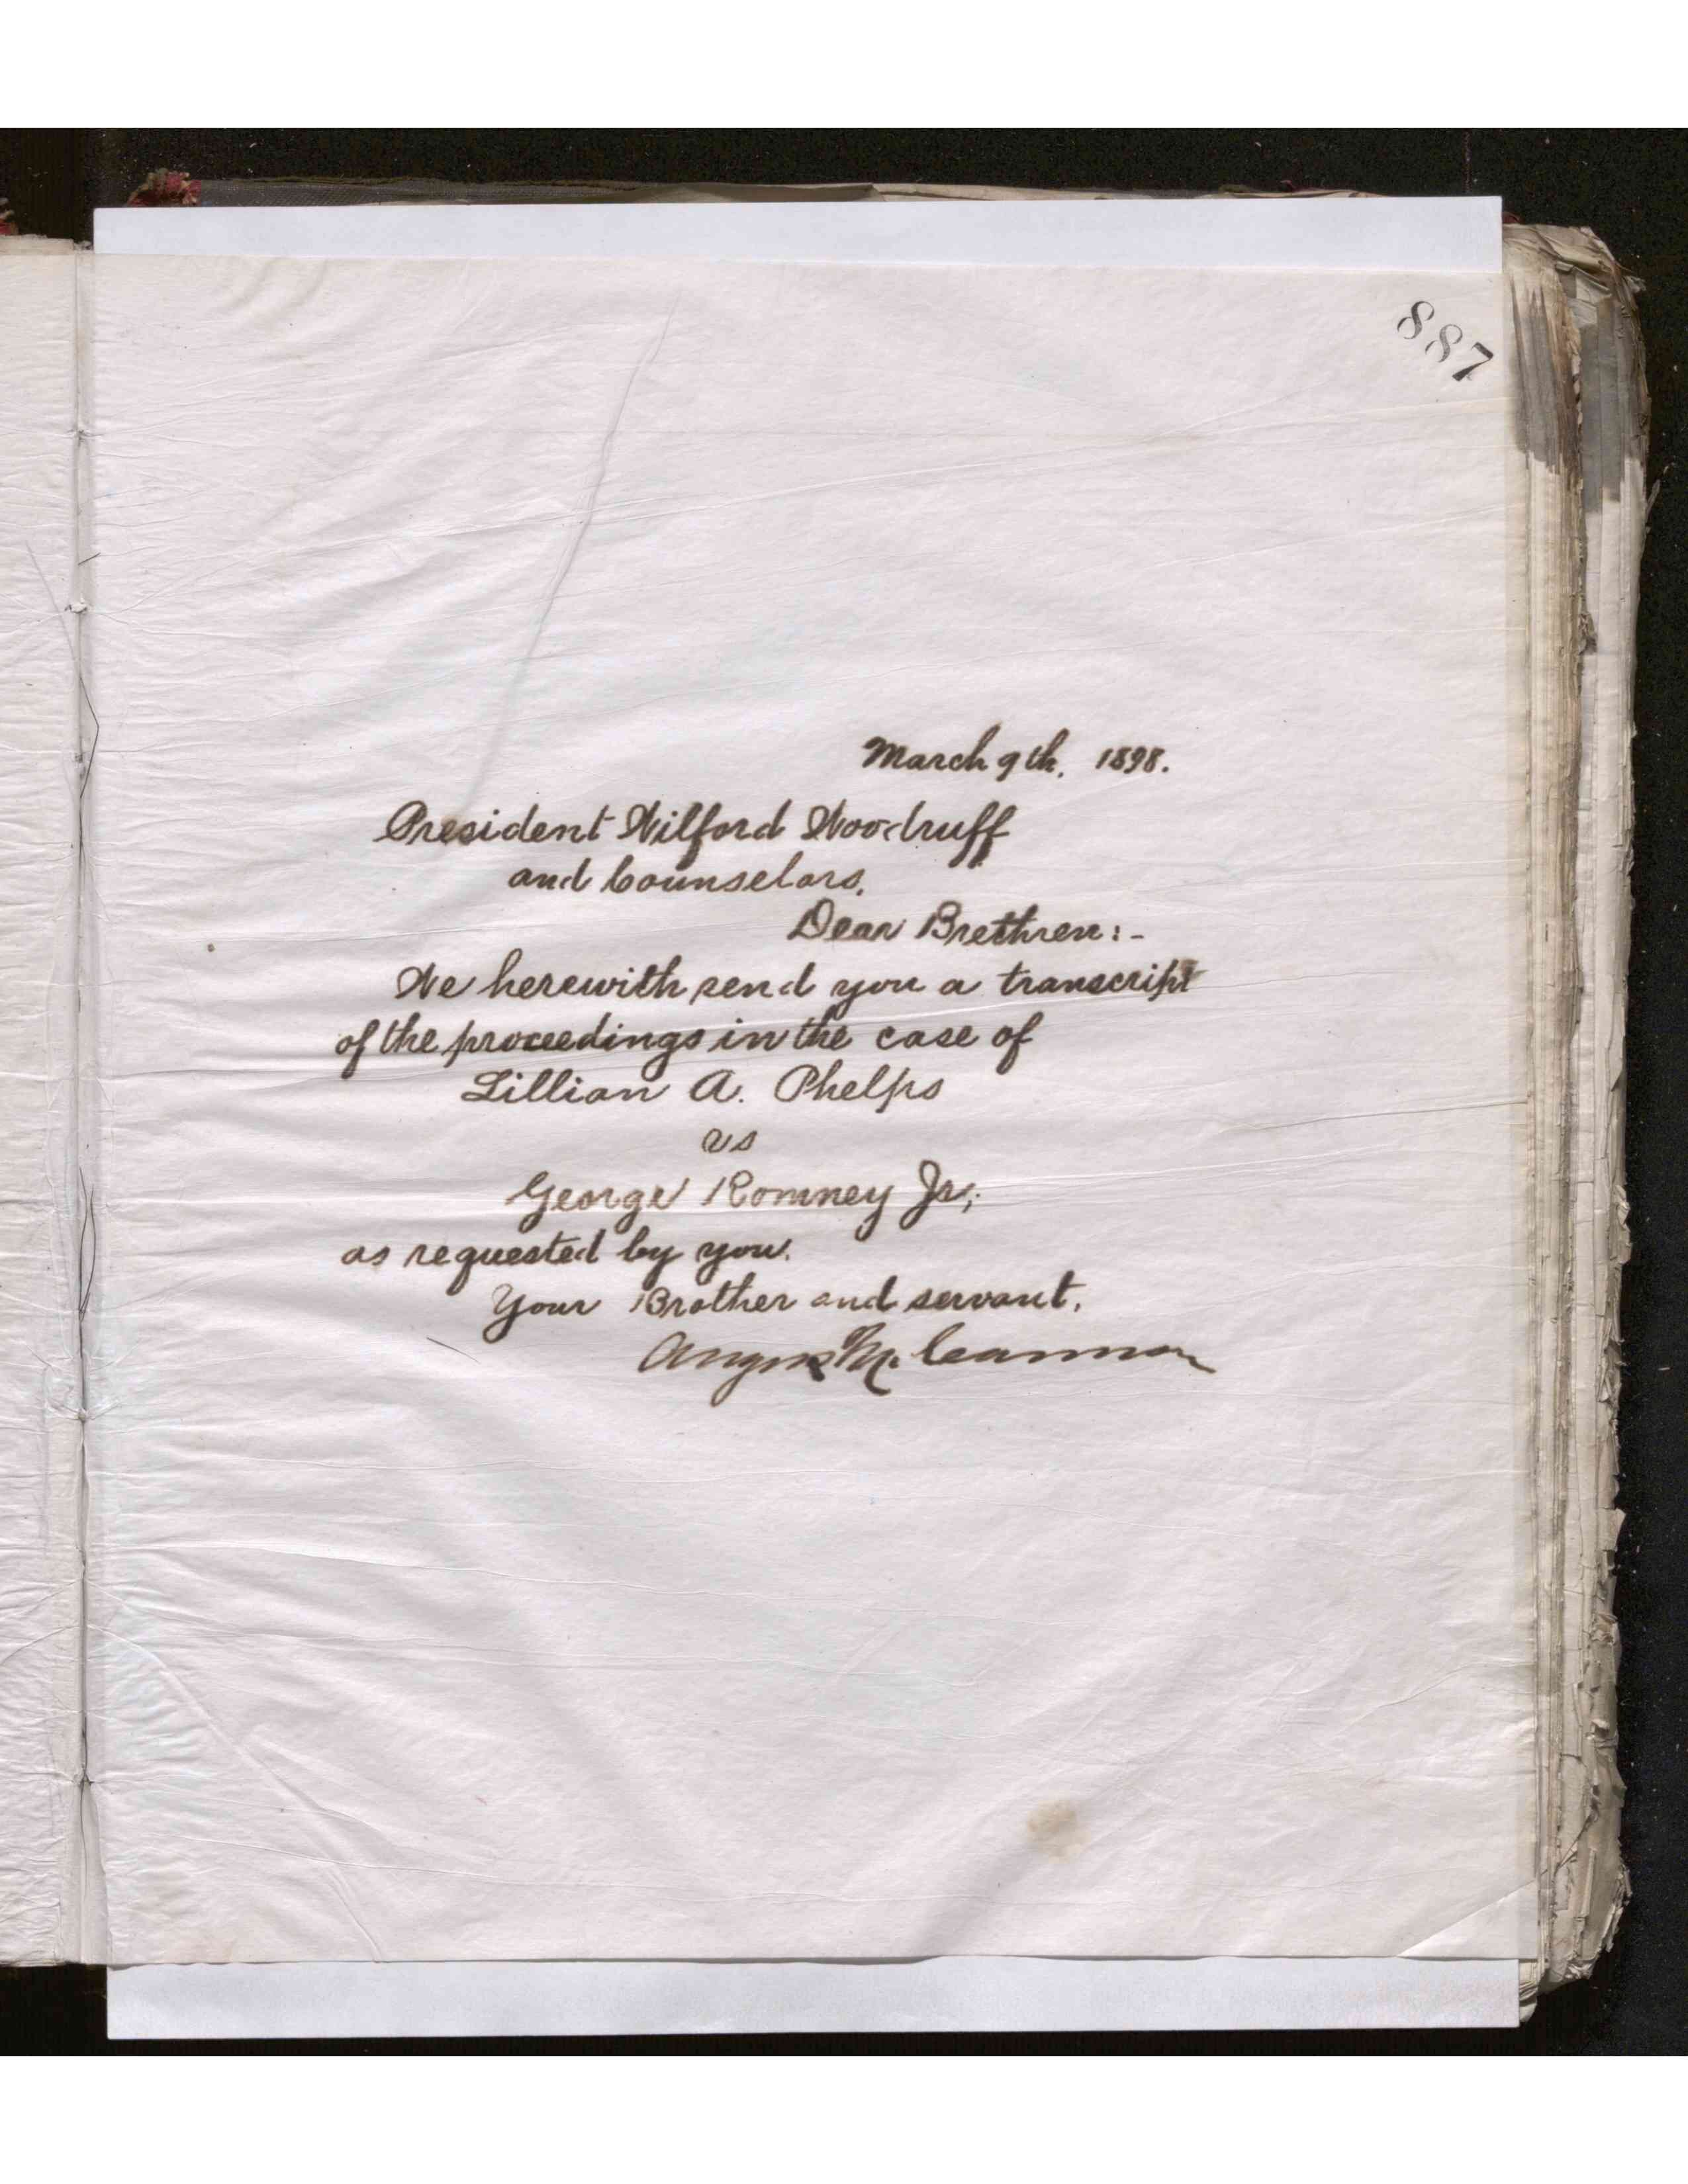 887
March 9th, 1898.
President Wilford Woodruff
and Counselors.
Dear Brethren:-
We herewith send you a transcript
of the proceedings in the case of
Lillian A. Phelps
vs
George Romney Jr;
as requested by you.
Your Brother and servant,
Angus M. Cannon